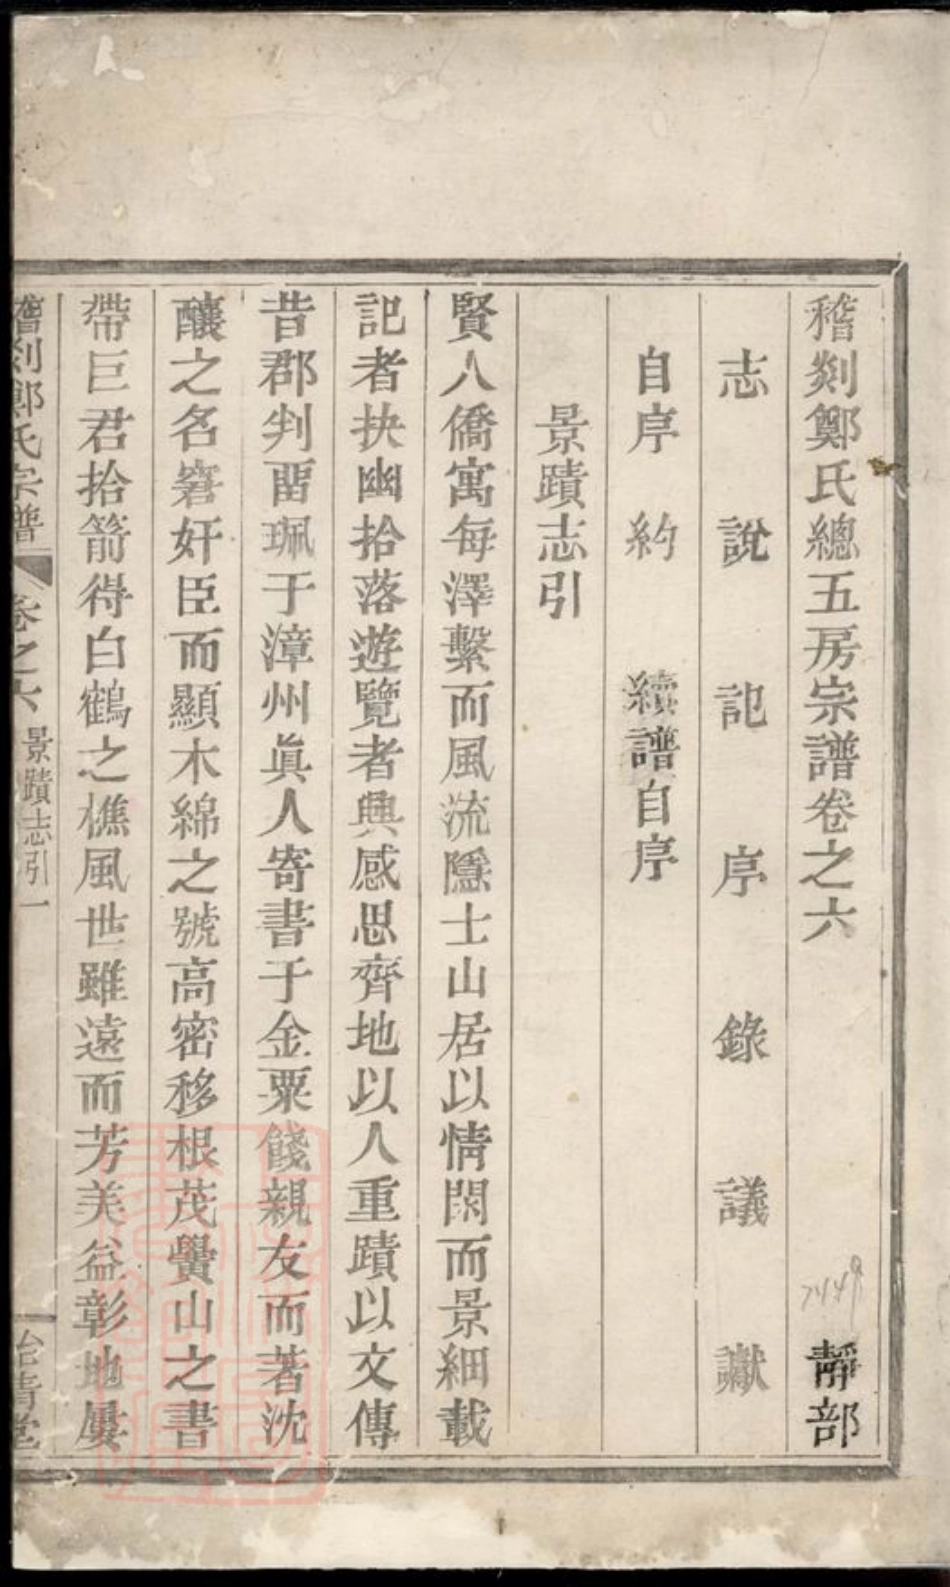 稽剡鄭氏總五房宗譜卷之六 靜部
志 說 記 序 錄 議 讞
自序 約 續譜自序
景蹟志引
賢人僑寓每澤繫而風流隱士山居以情閑而景細載
記者抉幽拾落遊覽者興感思齊地以人重蹟以文傳
昔郡判畱珮于漳州眞人寄書于金粟餞親友而著沈
釀之名窘奸臣而顯木綿之號高密移根茂黌山之書
帶巨君拾箭得白鶴之樵風世雖遠而芳美益彰地屢
稽剡鄭氏宗譜 卷之六 景蹟志引 一